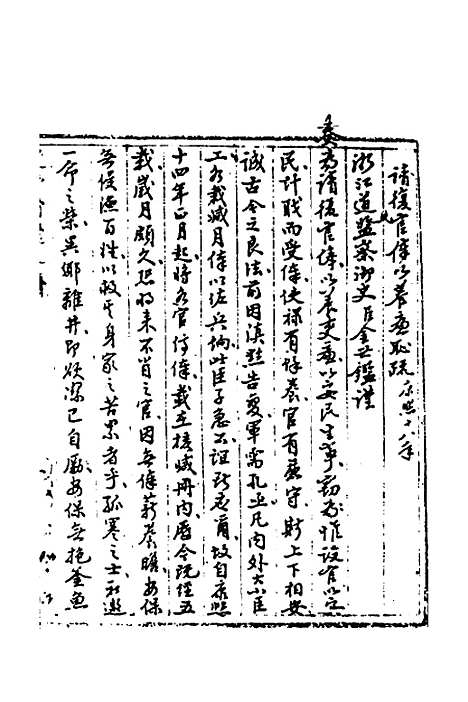 請復官俸以養廉恥疏 康熙十八年
浙江道監察御史臣金世鑑謹
奏為請復官俸以養吏廉以安民生事竊為惟設官以
民計職而受俸使祿有餘養官有廉守斯上下相安
誠古今之良法前因滇黔告變軍需孔亟凡內外大小臣
工各裁減月俸以佐兵餉此臣子急公誼所應爾故自康熙
十四年正月起將各官停俸載在核減冊內屈今既經五
載歲月頗久恐將來不肖之官因無俸薪養贍安保
無侵漁百姓以救其身家之苦累者乎孤寒之士社邀
一命之榮異鄉離井即欲潔己自勵安保無抱釜魚